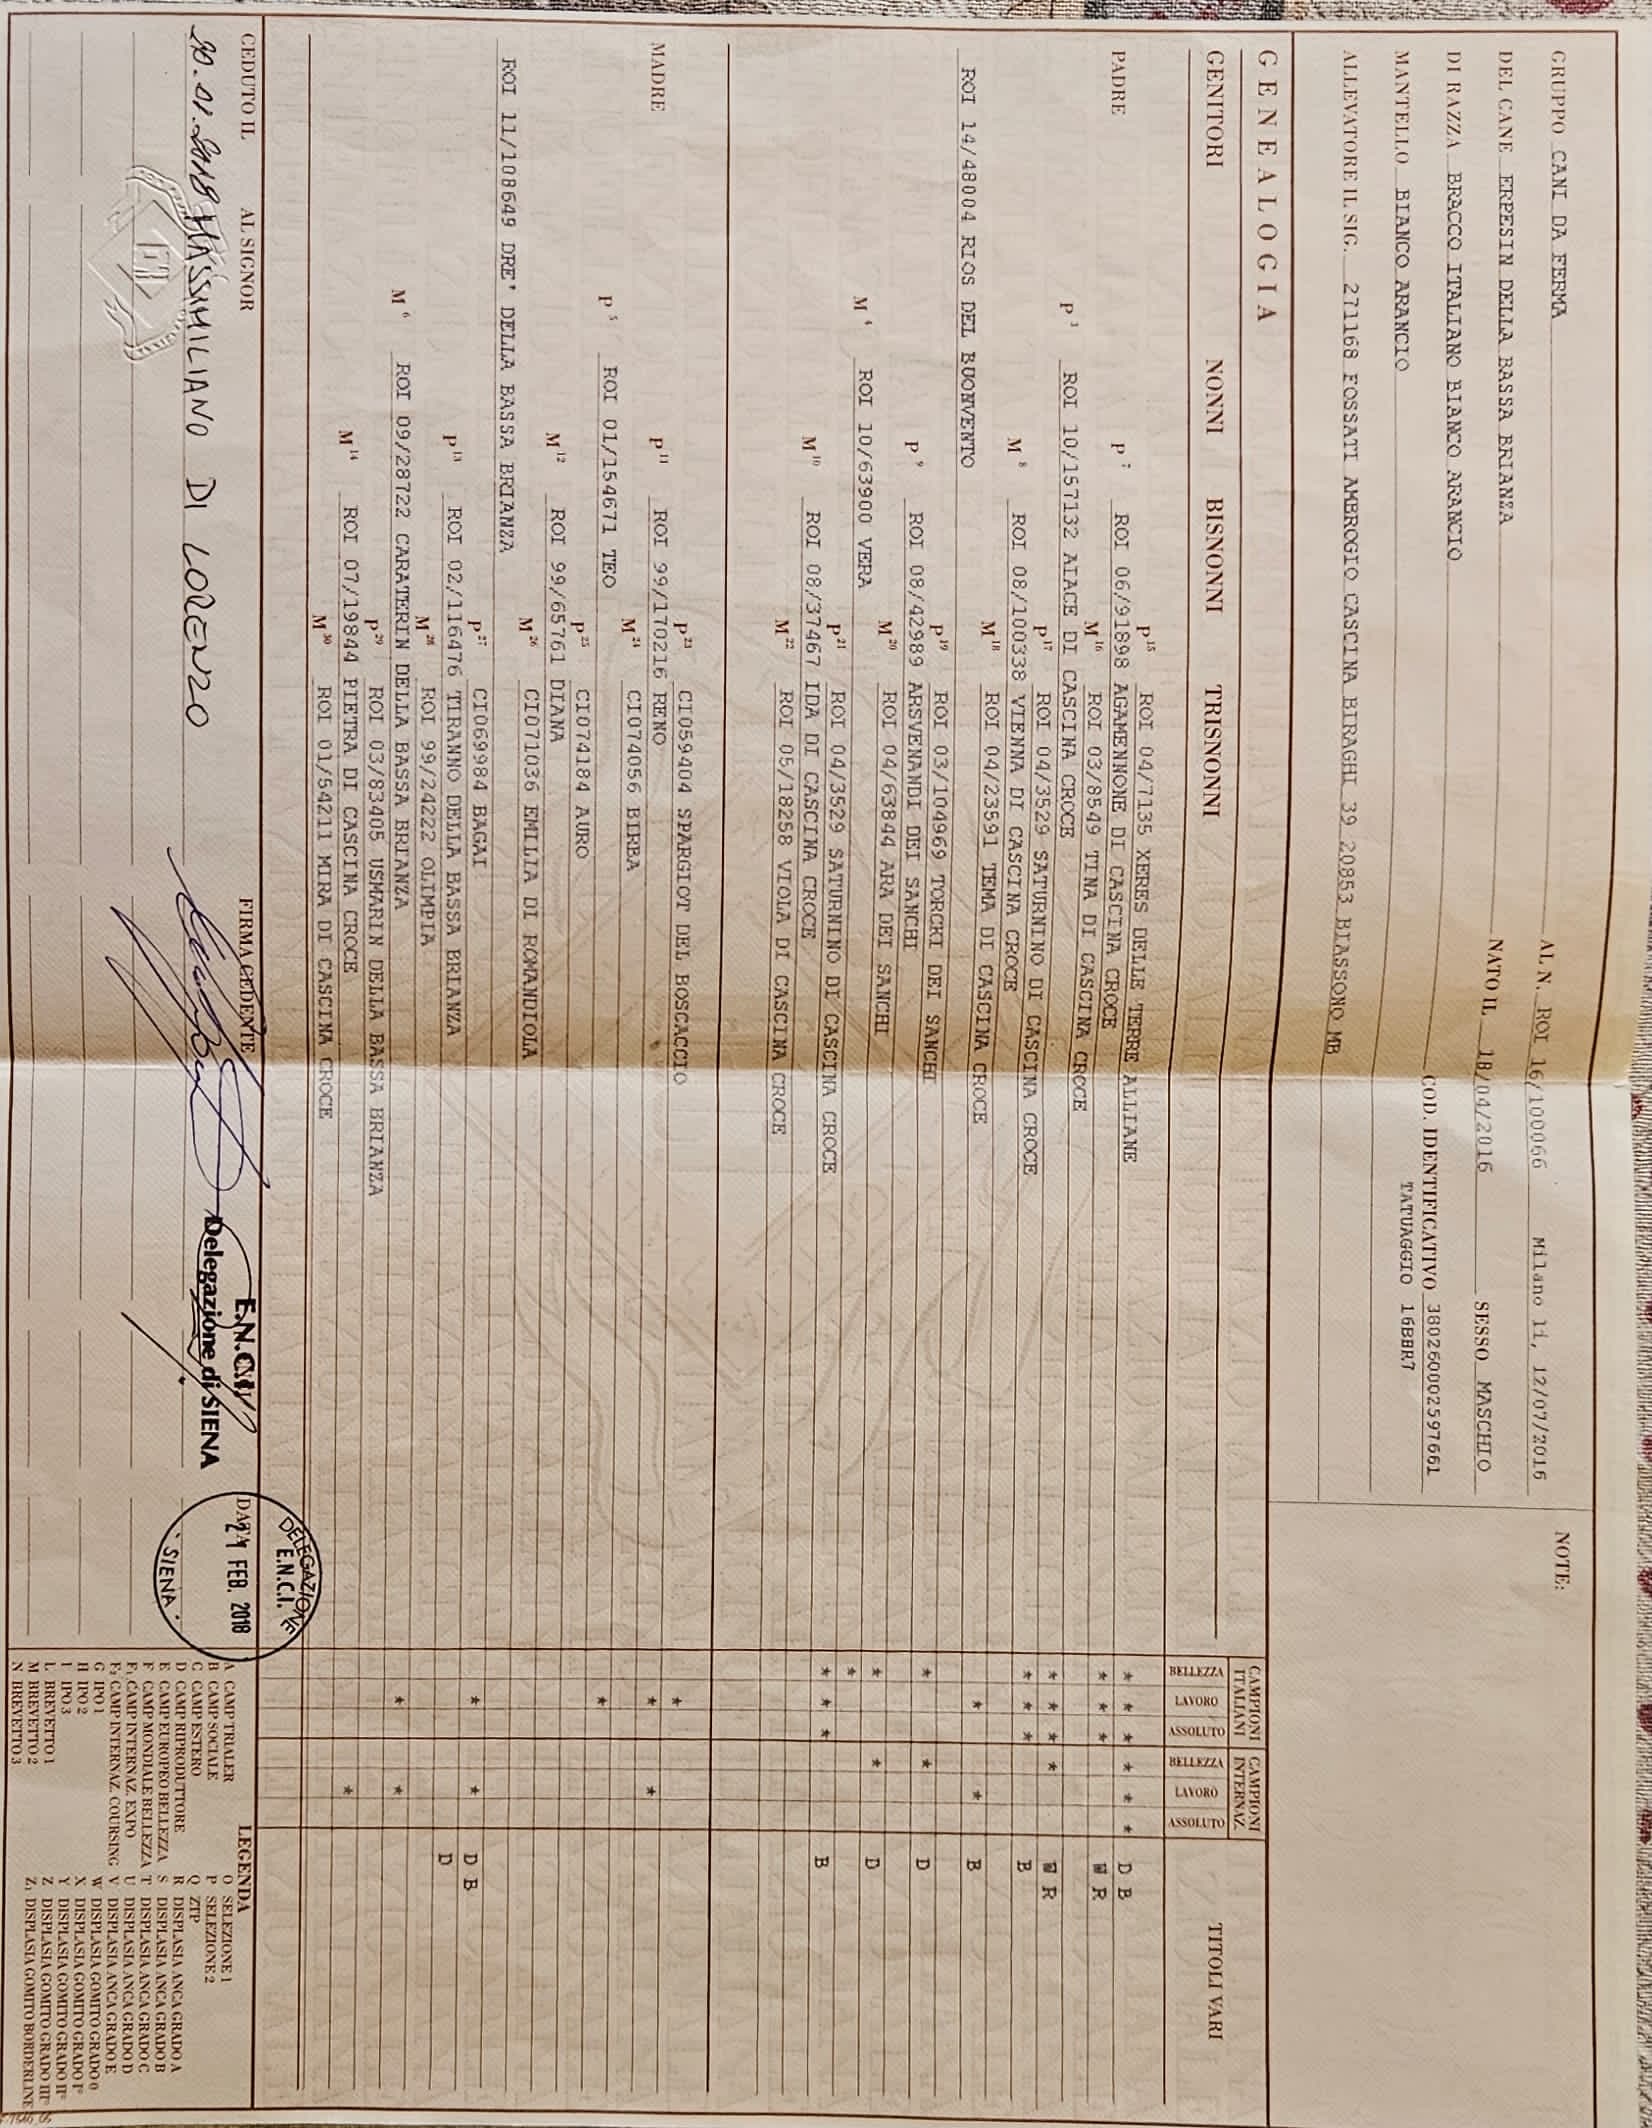 GRUPPO CANI DA FERMA AL N. ROI 16/100066 Milano lì, 12/07/2016
DEL CANE ERPESIN DELLA BASSA BRIANZA NATO IL 18/04/2016 SESSO MASCHIO
DI RAZZA BRACCO ITALIANO BIANCO ARANCIO COD. IDENTIFICATIVO 380260002597661
MANTELLO BIANCO ARANCIO TATUAGGIO 16BBR7
ALLEVATORE IL SIG. 271168 FOSSATI AMBROGIO CASCINA BIRAGHI 39 20853 BIASSONO MB
NOTE:
GENEALOGIA
GENITORI NONNI BISNONNI TRISNONNI
CAMPIONI ITALIANI CAMPIONI INTERNAZ.
BELLEZZA LAVORO ASSOLUTO BELLEZZA LAVORO ASSOLUTO TITOLI VARI
P 15 ROI 04/7135 XERES DELLE TERRE ALLIANE * * * * * * D B
PADRE P 7 ROI 06/91898 AGAMENNONE DI CASCINA CROCE
M 16 ROI 03/8549 TINA DI CASCINA CROCE * * * W R
P 3 ROI 10/157132 AIACE DI CASCINA CROCE
P 17 ROI 04/3529 SATURNINO DI CASCINA CROCE * * * * W R
M 8 ROI 08/100338 VIENNA DI CASCINA CROCE * * * B
M 18 ROI 04/23591 TEMA DI CASCINA CROCE * * B
ROI 14/48004 RIOS DEL BUONVENTO
P 19 ROI 03/104969 TORCKI DEI SANCHI * * D
P 9 ROI 08/42989 ARSVENANDI DEI SANCHI
M 20 ROI 04/63844 ARA DEI SANCHI * * D
M 4 ROI 10/63900 VERA *
P 21 ROI 04/3529 SATURNINO DI CASCINA CROCE * * * B
M 10 ROI 08/37467 IDA DI CASCINA CROCE
M 22 ROI 05/18258 VIOLA DI CASCINA CROCE
P 23 CI059404 SPARGIOT DEL BOSCACCIO *
MADRE P 11 ROI 99/170216 RENO * *
M 24 CI074056 BIRBA
P 5 ROI 01/154671 TEO *
P 25 CI074184 AURO
M 12 ROI 99/65761 DIANA
M 26 CI071036 EMILIA DI ROMANDIOLA
ROI 11/108649 DRE' DELLA BASSA BRIANZA
P 27 CI069984 BAGAI * * D B
P 13 ROI 02/116476 TIRANNO DELLA BASSA BRIANZA D
M 28 ROI 99/24222 OLIMPIA
M 6 ROI 09/28722 CARATERIN DELLA BASSA BRIANZA * *
P 29 ROI 03/83405 USMARIN DELLA BASSA BRIANZA
M 14 ROI 07/19844 PIETRA DI CASCINA CROCE *
M 30 ROI 01/54211 MIRA DI CASCINA CROCE
CEDUTO IL AL SIGNOR FIRMA CEDENTE DATA
20.01.2018 MASSIMILIANO DI LORENZO
E.N.C.I.
Delegazione di SIENA
DELEGAZIONE
E.N.C.I.
21 FEB. 2018
SIENA
LEGENDA
A CAMP TRIALER
B CAMP SOCIALE
C CAMP ESTERO
D CAMP RIPRODUTTORE
E CAMP EUROPEO BELLEZZA
F CAMP MONDIALE BELLEZZA
F1 CAMP INTERNAZ. EXPO
F2 CAMP INTERNAZ. COURSING
G IPO 1
H IPO 2
I IPO 3
L BREVETTO 1
M BREVETTO 2
N BREVETTO 3
O SELEZIONE 1
P SELEZIONE 2
Q ZTP
R DISPLASIA ANCA GRADO A
S DISPLASIA ANCA GRADO B
T DISPLASIA ANCA GRADO C
U DISPLASIA ANCA GRADO D
V DISPLASIA ANCA GRADO E
W DISPLASIA GOMITO GRADO 0
X DISPLASIA GOMITO GRADO I°
Y DISPLASIA GOMITO GRADO II°
Z DISPLASIA GOMITO GRADO III°
Z1 DISPLASIA GOMITO BORDERLINE